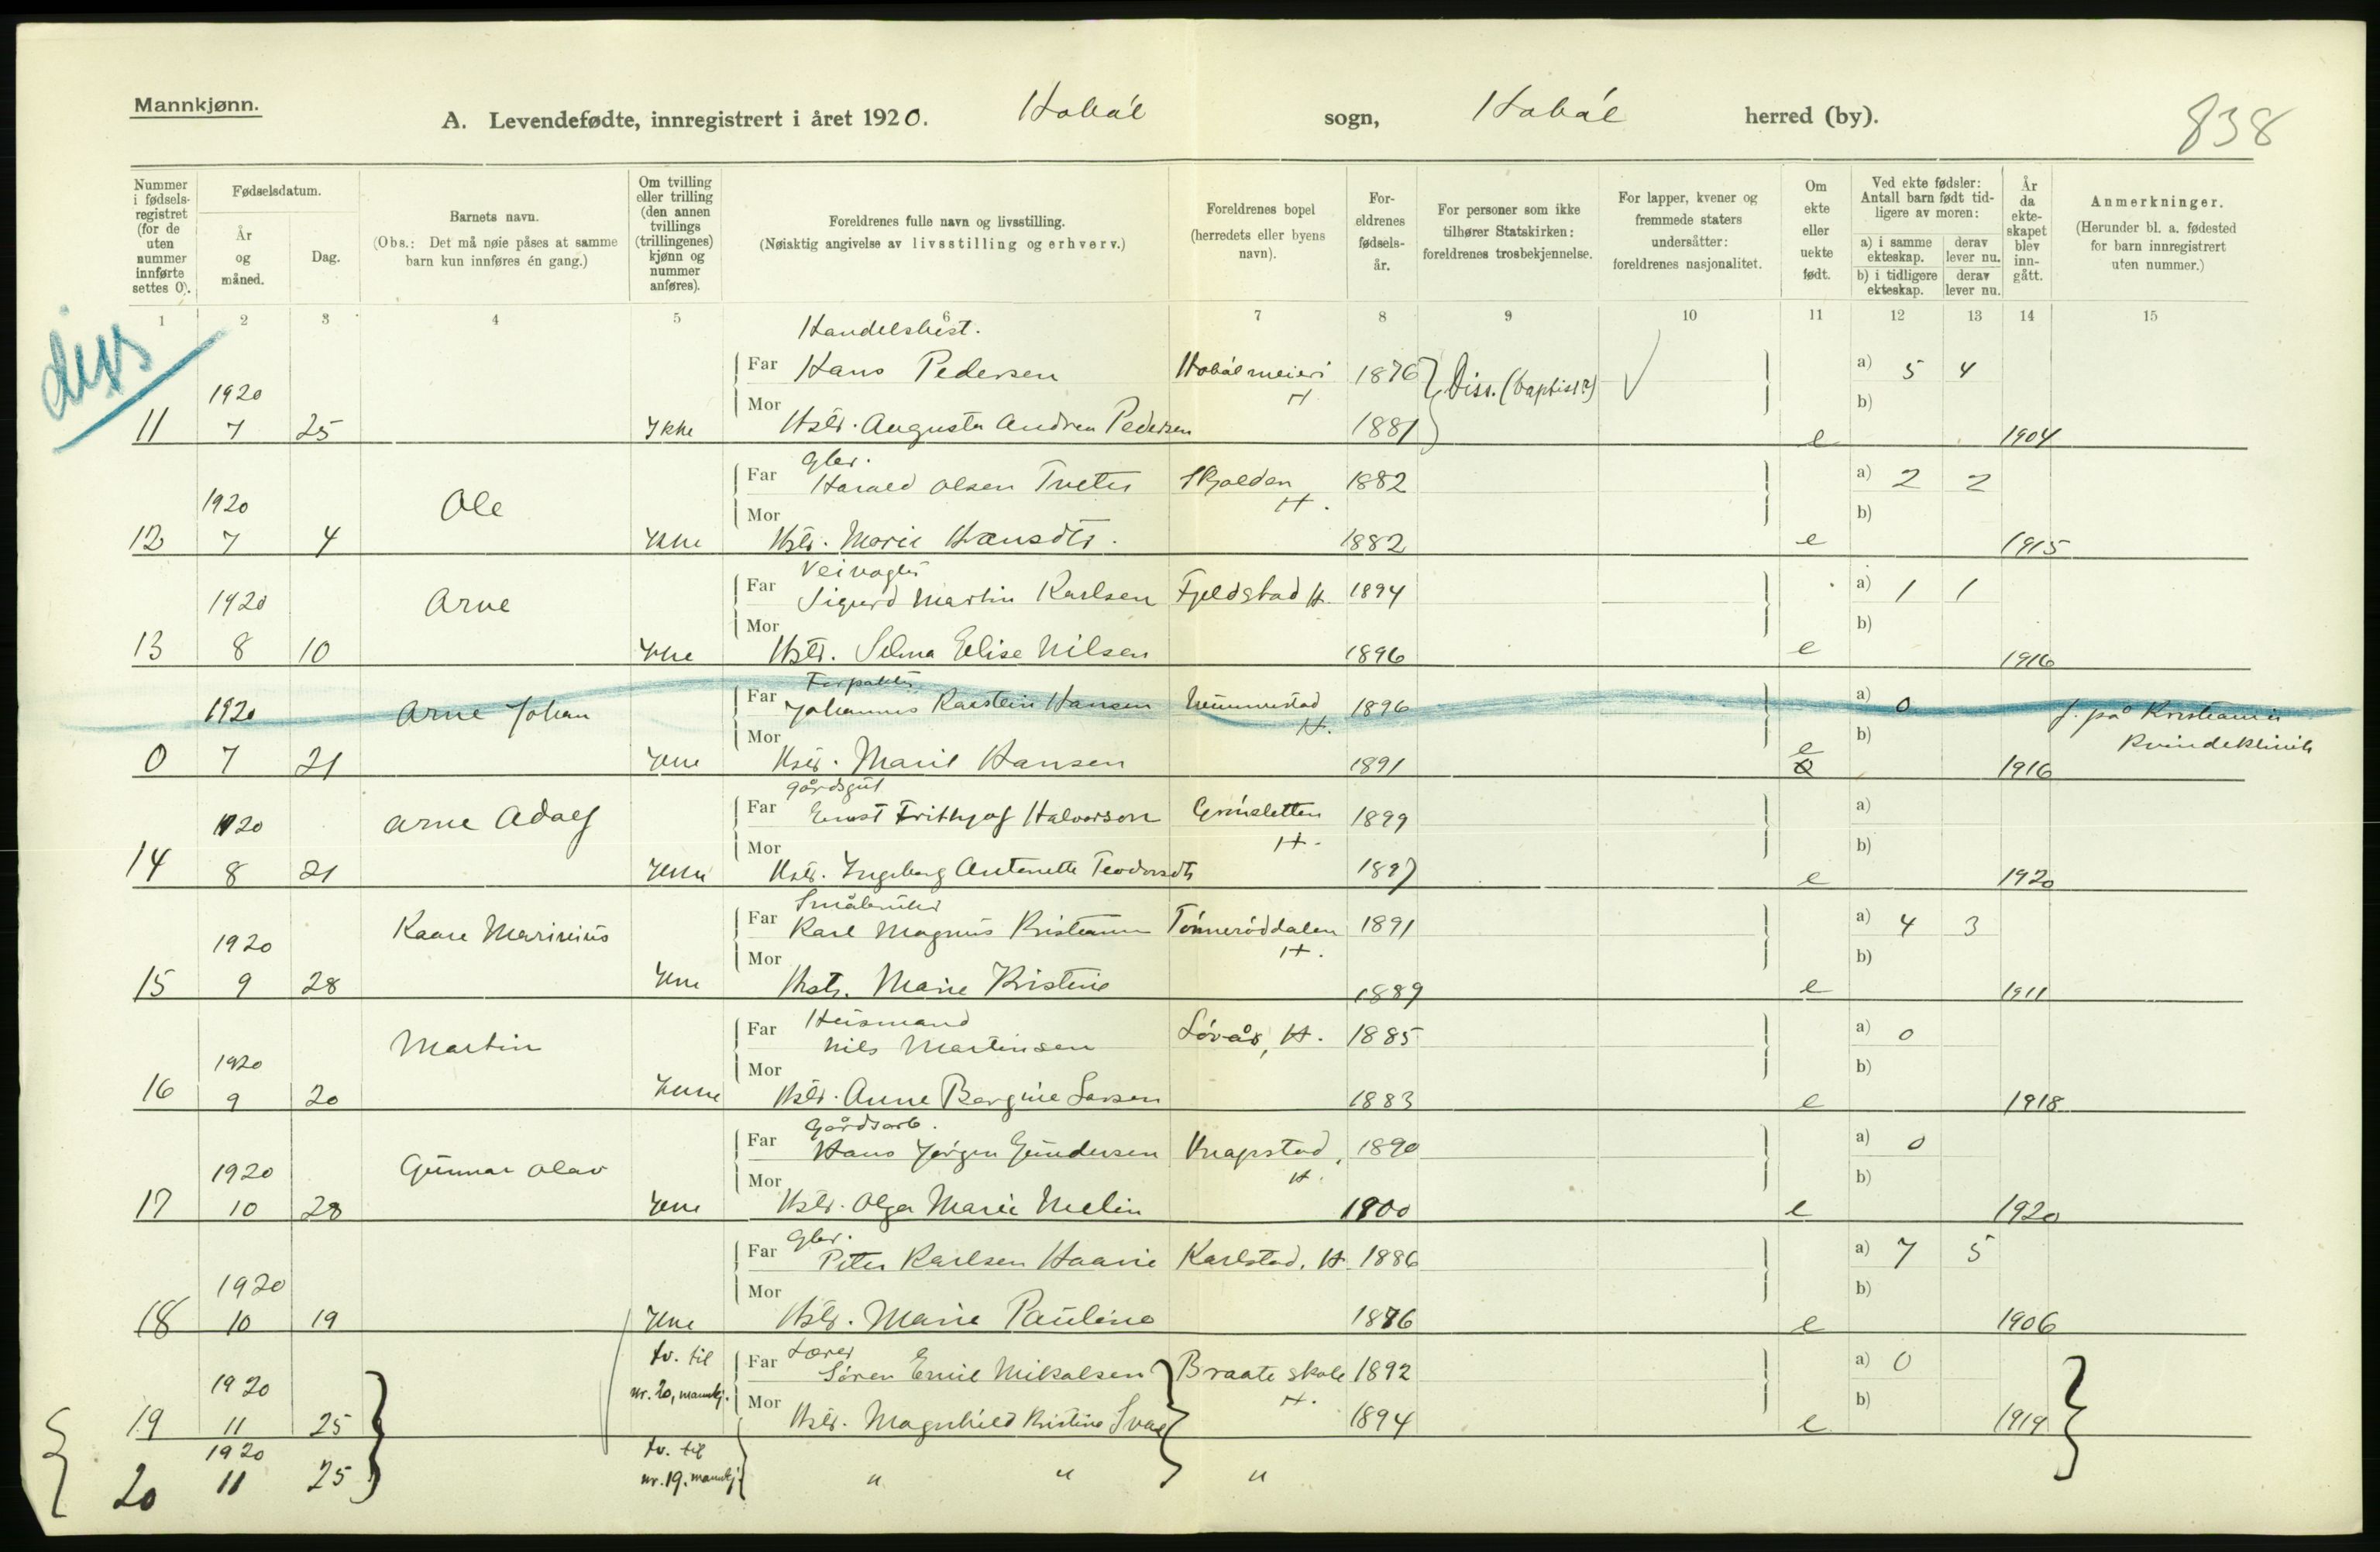 Mannkjønn.
A. Levendefødte, innregistrert i året 1920. Hobøl sogn, Hobøl herred (by).
838
Nummer i fødselsregistret (for de uten nummer innførte settes 0).
Fødselsdatum.
År og måned.
Dag.
Barnets navn.
(Obs.: Det må nøie påses at samme barn kun innføres én gang.)
Om tvilling eller trilling (den annen tvillings (trillingenes) kjønn og nummer anføres).
Foreldrenes fulle navn og livsstilling.
(Nøiaktig angivelse av livsstilling og erhverv.)
Foreldrenes bopel (herredets eller byens navn).
Foreldrenes fødselsår.
For personer som ikke tilhører Statskirken: foreldrenes trosbekjennelse.
For lapper, kvener og fremmede staters undersåtter: foreldrenes nasjonalitet.
Om ekte eller uekte født.
Ved ekte fødsler: Antall barn født tidligere av moren:
a) i samme ekteskap. derav lever nu.
b) i tidligere ekteskap. derav lever nu.
År da ekteskapet blev inngått.
Anmerkninger.
(Herunder bl. a. fødested for barn innregistrert uten nummer.)
1 2 3 4 5 6 7 8 9 10 11 12 13 14 15
diss
Handelsbest.
1920 Far Hans Pedersen Hobøl meieri H 1876 Diss. (baptist?) a) 5 4
b)
11 7 25 Ikke Mor Hstr. Augusta Andrea Pedersen 1881 e 1904
Gbr.
1920 Ole Far Harald Olsen Tveter Skjolden H. 1882 a) 2 2
b)
12 7 4 Ikke Mor Hstr. Marie Hansdtr. 1882 e 1915
Veivogter
1920 Arne Far Sigurd Martin Karlsen Fjeldstad H. 1894 a) 1 1
b)
13 8 10 Ikke Mor Hstr. Selma Elise Nilsen 1896 e 1916
Forpakter
1920 Arne Johan Far Johannes Karstein Hansen H. 1896 a) 0 f. på Kristiania
b) Kvindeklinik
0 7 21 Ikke Mor Hstr. Marie Hansen 1891 e 1916
Gårdsgut
1920 Arne Adolf Far Ernst Frithjof Halvorson H. 1899 a)
b)
14 8 21 Ikke Mor Hstr. Ingeborg Antonette Teodorsdtr 1897 e 1920
Småbruker
1920 Kaare Marinius Far Karl Magnus Kristiansen Tønnerøddalen H. 1891 a) 4 3
b)
15 9 28 Ikke Mor Hstr. Marie Kristine 1889 e 1911
Heismand
1920 Martin Far Nils Martinsen Løvås, H. 1885 a) 0
b)
16 9 20 Ikke Mor Hstr. Anne Bergine Larsen 1883 e 1918
Gårdsarb.
1920 Gunnar Olav Far Hans Jørgen Gundersen Knapstad, H. 1890 a) 0
b)
17 10 28 Ikke Mor Hstr. Olga Marie Melin 1900 e 1920
Gbr.
1920 Far Peter Karlsen Haavie Karlstad, H. 1886 a) 7 5
b)
18 10 19 Ikke Mor Hstr. Marie Pauline 1876 e 1906
tv. til Lærer
1920 nr. 20, mannkj. Far Søren Emil Mikalsen Braate skole H. 1892 a) 0
b)
19 11 25 Mor Hstr. Magnhild Kristine 1894 e 1919
1920 tv. til
20 11 25 nr. 19. mannkj. " " "